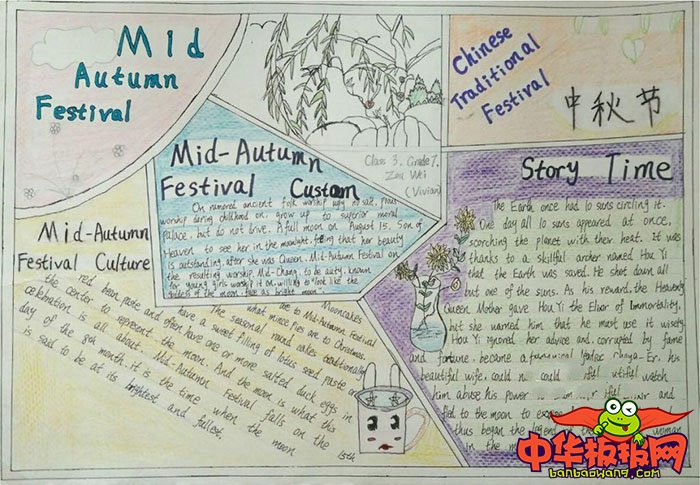 Mid
Autumn
Festival
Chinese
Traditional
Festival
中秋节
Class 3, Grade 7,
Zou Wei
(Vivian)
Mid-Autumn
Festival Custom
On numored ancient folk worship ugly no salt, pious
worship during childhood on, grow up to superior moral
palace, but do not drive. A full moon on August 15, Son of
Heaven to see her in the moonlight, that her beauty
is outstanding, after she was Queen, Mid-Autumn Festival on
the resulting worship. Mid-Chang, to be auty, known
for young girls worship it on, willing to look like the
goddess of the moon, face as bright moon.
Mid-Autumn
Festival Culture
Mooncakes
are to Mid-Autumn Festival
what mince pies are to Christmas.
The seasonal round cakes traditionally
have a sweet filling of lotus seed paste or
red bean paste and often have one or more salted duck eggs in
the center to represent the moon. And the moon is what this
celebration is all about. Mid-Autumn Festival falls on the 15th
day of the 8th month, it is the time when the moon
is said to be at its brightest and fullest.
Story Time
The Earth once had 10 suns circling it.
One day all 10 suns appeared at once,
scorching the planet with their heat. It was
thanks to a skillful archer named Hou Yi
that the Earth was saved. He shot down all
but one of the suns. As his reward, the Heavenly
Queen Mother gave Hou Yi the Elixir of Immortality,
but she warned him that he must use it wisely.
Hou Yi ignored her advice and corrupted by fame
and fortune, became a
beautiful wife, could watch
him abuse his power
fled to the moon to
thus began the legend of
in the
中华板报网
banbaowang.com